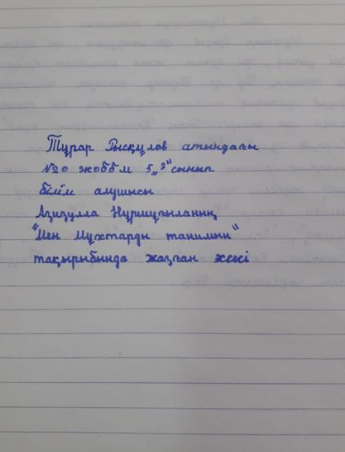 Тұрар Рысқұлов атындағы
№20 жоббм 5 „ " сынып
білім алушысы
Азизулла Нұршуғыланың
"Мен Мұхтарды танимын"
тақырыбында жазған